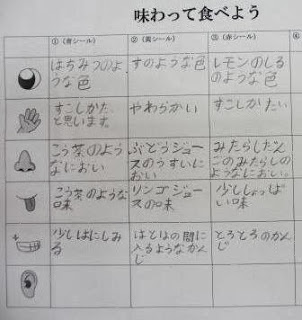 味わって食べよう
①(青シール)
②(黄シール)
③(赤シール)
④
はちみつのよ
うな色
すのような色
レモンのしる
のような色
すこしかた
と思います。
やわらかい
すこしかたい
こう茶のよう
なにおい
ぶどうジュー
スのうすいにお
い
みたらしだん
ごのみたらしの
ようなにおい。
こう茶のような
味
リンゴジュー
スの味
少ししょっぱ
い味
少しはにしみ
る
はとはの間に
入るようなかん
じ
とろとろのかん
じ